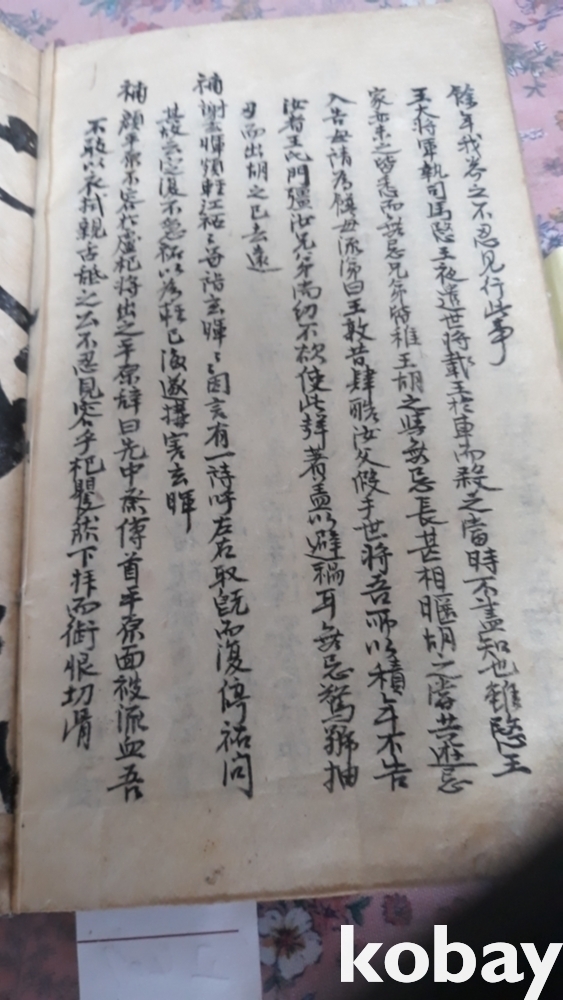 餘年我岑之不忍見行此事
王大將軍執司馬愍王夜遣世將載王於車而殺之當時不盡知也雖愍王
家亦未之皆悉而無忌兄弟皆稚王胡之與無忌長甚相暱胡之嘗共遊無忌
入告母請爲饌母流涕曰王敦昔肆酷汝父假手世將吾所以積年不告
汝者王氏門彊汝兄弟尚幼不欲使此聲著蓋以避禍耳無忌驚號抽
刃而出胡之已去遠
補謝玄暉頗輕江祏祏每詣玄暉暉因言有一詩呼左右取旣而復停祏問
其故云定復不急祏以爲輕己後遂搆害玄暉
補顔平原不容代盧杞將出之平原辭曰先中丞傳首平原面被流血吾
不敢以衣拭親舌舐之公不忍見容乎杞矍然下拜而銜恨切骨
kobay